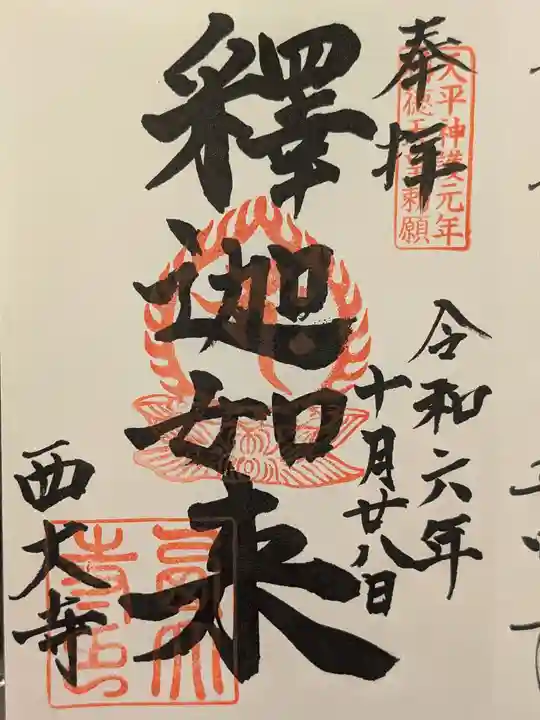 奉拝
天平神護元年
稱徳天皇勅願
令和六年
十月廿八日
釋迦如来
西大寺